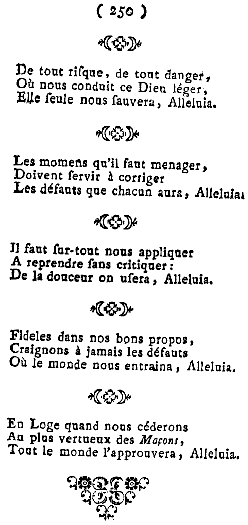 ( 250 )
De tout riſque, de tout danger,
Où nous conduit ce Dieu léger,
Elle ſeule nous ſauvera, Alleluia.
Les momens qu'il faut menager,
Doivent ſervir à corriger
Les défauts que chacun aura, Alleluia.
Il faut ſur-tout nous appliquer
A reprendre ſans critiquer :
De la douceur on uſera, Alleluia.
Fideles dans nos bons propos,
Craignons à jamais les défauts
Où le monde nous entraina, Alleluia.
En Loge quand nous céderons
Au plus vertueux des Maçons,
Tout le monde l'approuvera, Alleluia.